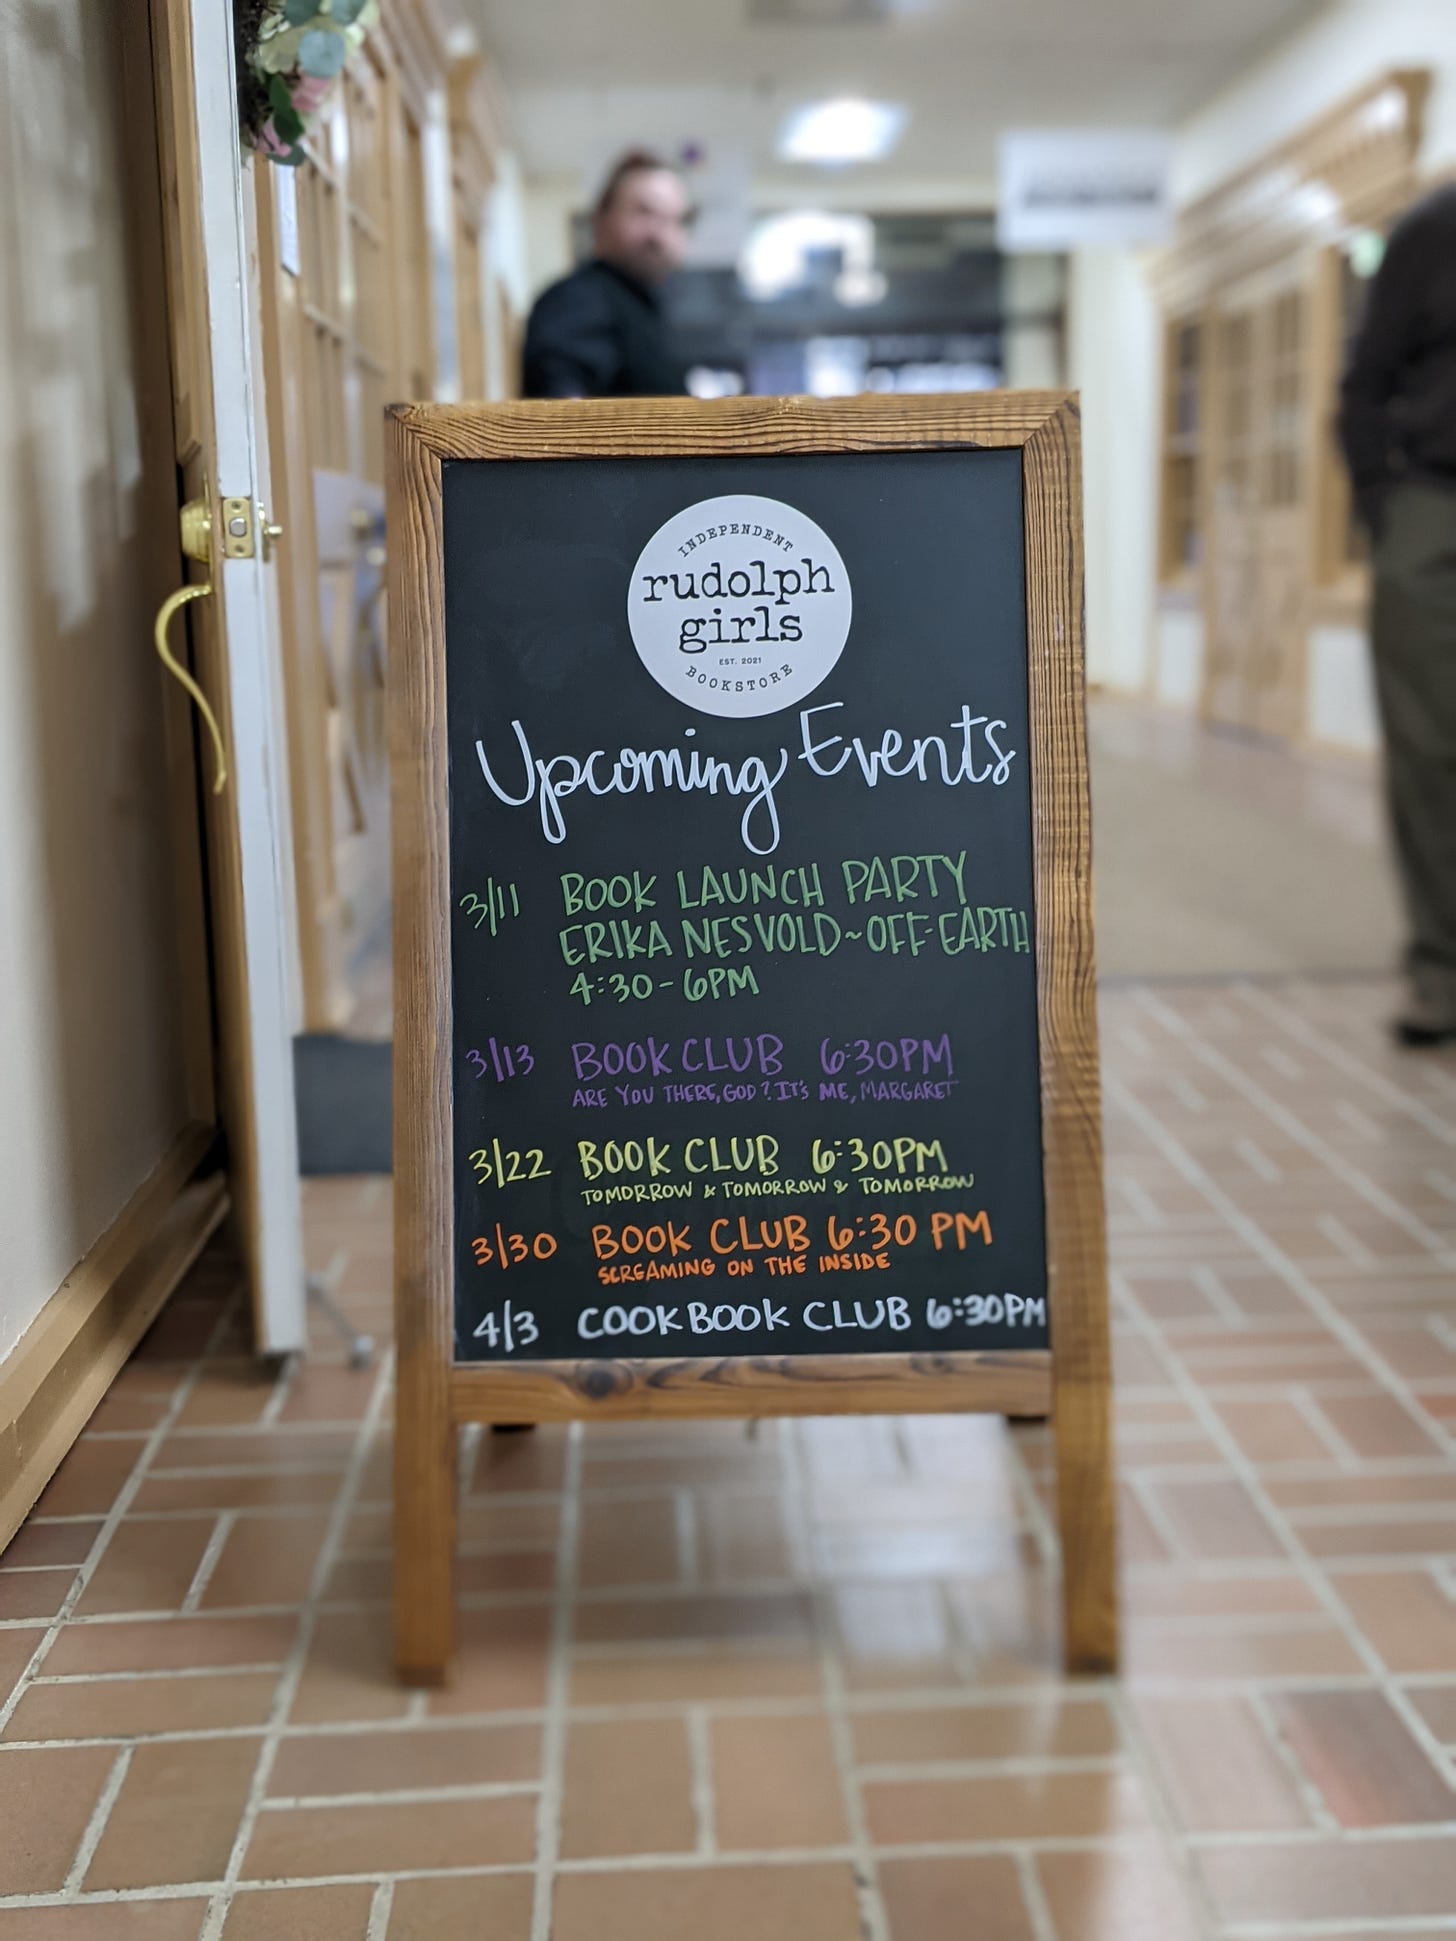 INDEPENDENT
rudolph
girls
EST. 2021
BOOKSTORE
Upcoming Events
3/11 BOOK LAUNCH PARTY
ERIKA NESVOLD~OFF-EARTH
4:30-6PM
3/13 BOOK CLUB 6:30PM
ARE YOU THERE, GOD? IT'S ME, MARGARET
3/22 BOOK CLUB 6:30PM
TOMORROW & TOMORROW & TOMORROW
3/30 BOOK CLUB 6:30 PM
SCREAMING ON THE INSIDE
4/3 COOKBOOK CLUB 6:30PM